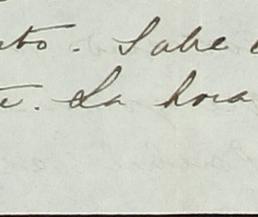 nto. Sabe
te. La hora